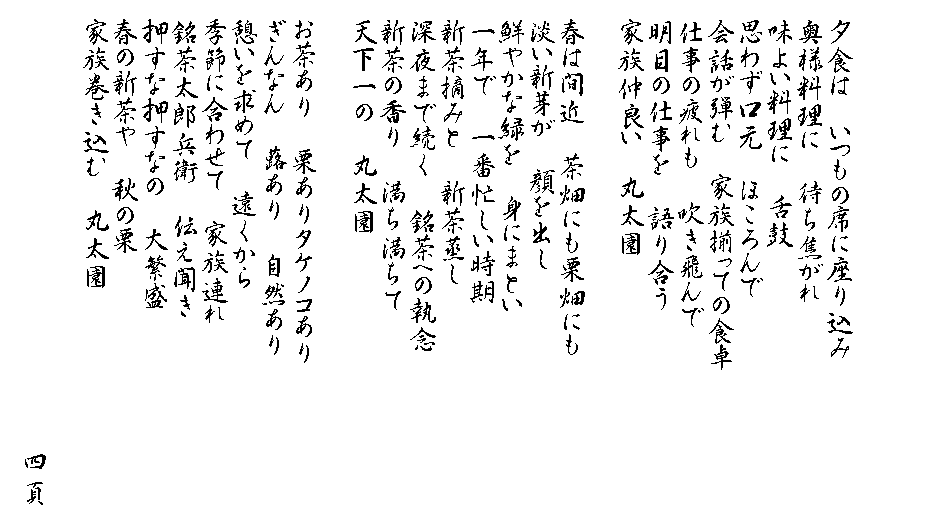 夕食は いつもの席に座り込み
奥様料理に 待ち焦がれ
味よい料理に 舌鼓
思わず口元 ほころんで
会話が弾む 家族揃っての食卓
仕事の疲れも 吹き飛んで
明日の仕事を 語り合う
家族仲良い 丸太園
春は間近 茶畑にも栗畑にも
淡い新芽が 顔を出し
鮮やかな緑を 身にまとい
一年で 一番忙しい時期
新茶摘みと 新茶蒸し
深夜まで続く 銘茶への執念
新茶の香り 満ち満ちて
天下一の 丸太園
お茶あり 栗ありタケノコあり
ぎんなん 蕗あり 自然あり
憩いを求めて 遠くから
季節に合わせて 家族連れ
銘茶太郎兵衛 伝え聞き
押すな押すなの 大繁盛
春の新茶や 秋の栗
家族巻き込む 丸太園
四頁